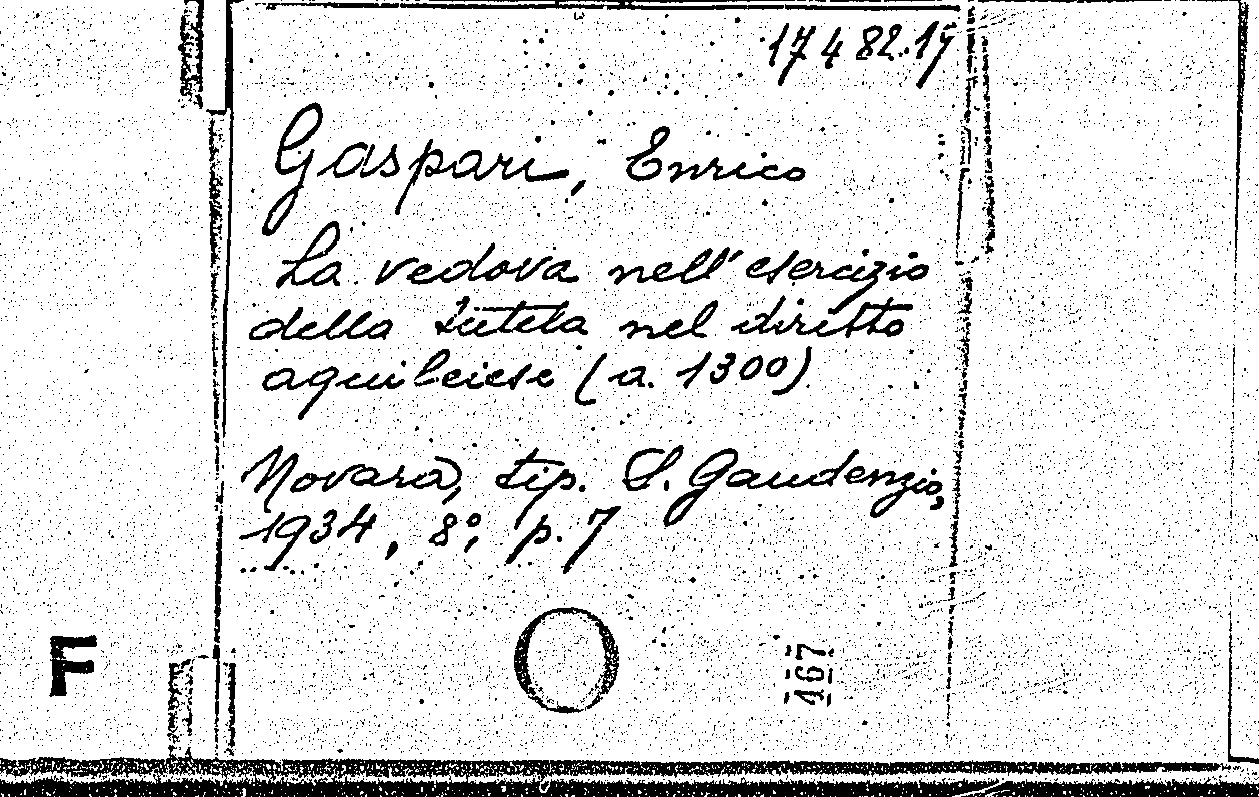 17482.17
Gaspari, Enrico
La vedova nell'esercizio
della tutela nel diritto
aquileiese (a. 1300)
Novara, tip. S. Gaudenzio,
1934, 8°, p. 7
F
467